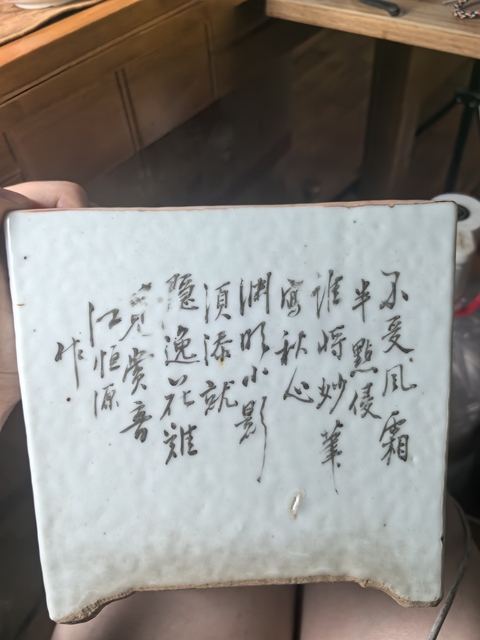 不受風霜
半點侵
誰將妙筆
寫秋心
淵明小影
須添就
隱逸花難
覓賞音
江恒源
作